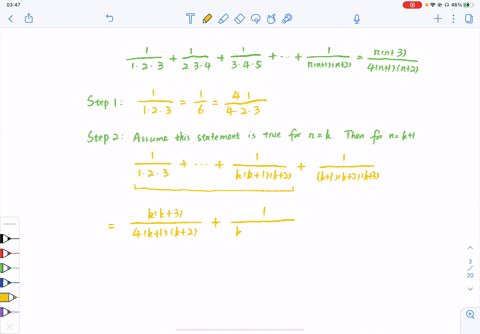 03:47
46%
1/(1·2·3) + 1/(2·3·4) + 1/(3·4·5) + ··· + 1/(n(n+1)(n+2)) = n(n+3)/(4(n+1)(n+2))
Step 1: 1/(1·2·3) = 1/6 = 4·1/(4·2·3)
Step 2: Assume this statement is true for n=k. Then for n=k+1
1/(1·2·3) + ··· + 1/(k(k+1)(k+2)) + 1/((k+1)(k+2)(k+3))
= k(k+3)/(4(k+1)(k+2)) + 1/k
3
/
20